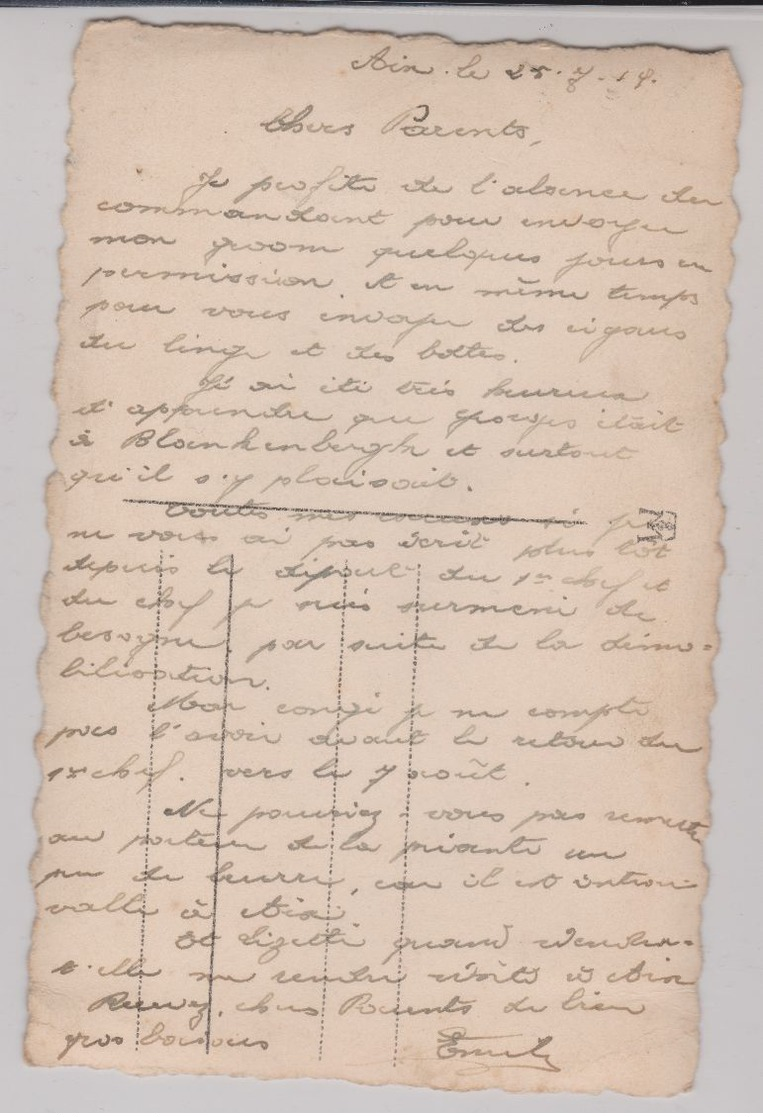 Aix. le 25.7.19.
Chers Parents,
Je profite de l'absence du
commandant pour envoyer
mon groom quelques jours en
permission et en même temps
pour vous envoyer des cigares
du linge et des bottes.
J'ai été très heureux
d'apprendre que Georges était
à Blankenbergh et surtout
qu'il s'y plaisait.
Toutes mes excuses si je
ne vous ai pas écrit plus tôt
depuis le départ du 1er chef et
du chef je suis surmené de
besogne par suite de la démo=
bilisation.
Mon congé je ne compte
pas l'avoir avant le retour du
1er chef. vers le 7 août.
Ne pourriez-vous pas remettre
au porteur de la présente un
peu de beurre, car il est introu-
vable à Aix.
Et Lizette quand viendra-
t-elle me rendre visite à Aix
Recevez, chers Parents de bien
gros baisers Emile